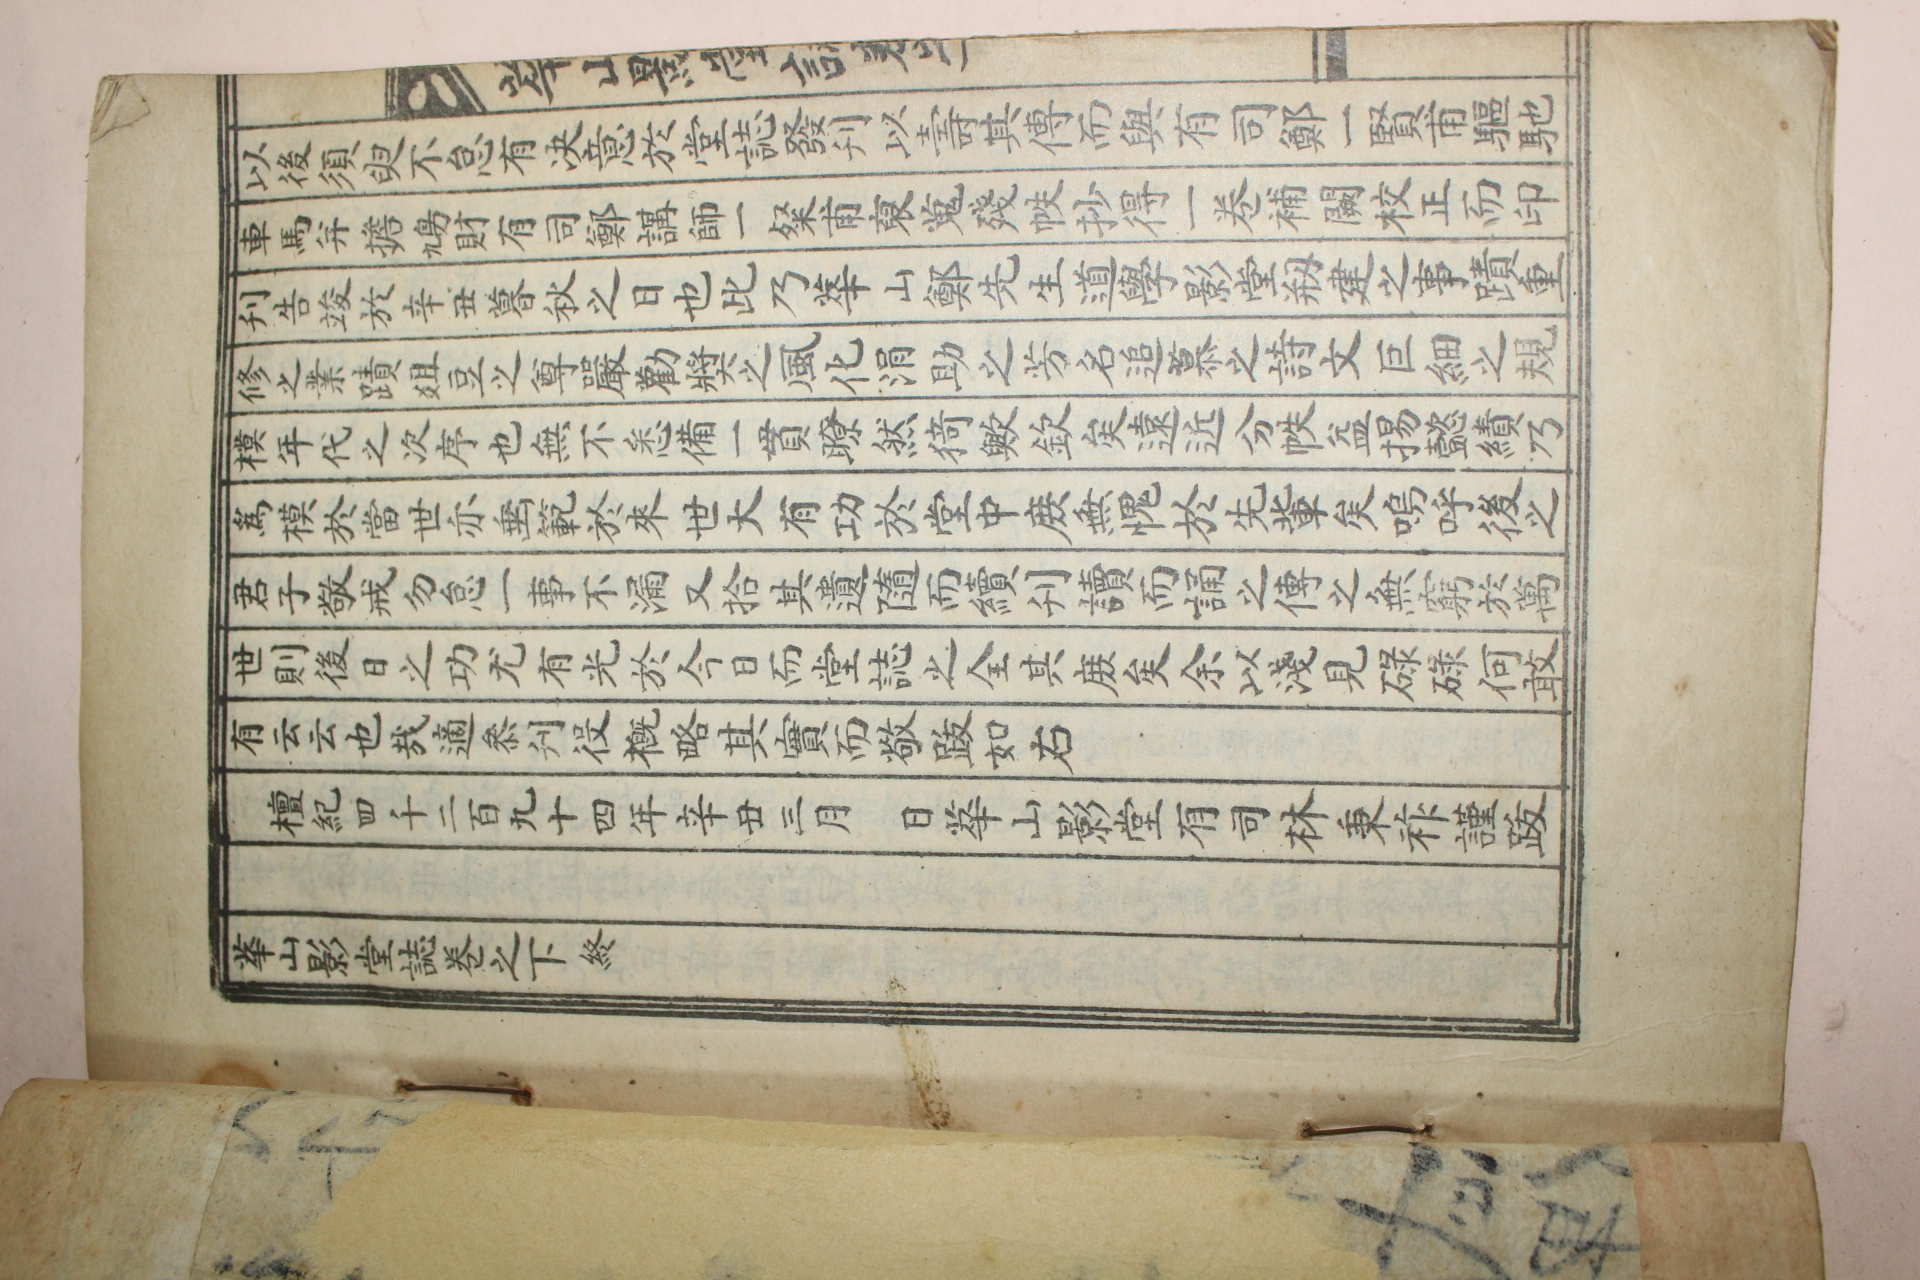 華山影堂誌卷之
以後須臾不怠有決意於堂誌發刊以壽其傳而與有司鄭一賢甫驅馳
車馬弁擔鳩財有司鄭講師一粲甫裒蒐殘帙抄得一卷補闕校正而印
刊告竣於辛丑暮秋之日也比乃華山鄭先生道學影堂刱建之事蹟重
修之業蹟俎豆之尊嚴勸獎之風化涓助之芳名追慕之詩文巨細之規
模年代之次序也無不悉備一貫瞭然猗歟欽矣遠近分帙益揚懿績乃
爲模於當世亦垂範於來世大有功於堂中庶無愧於先輩矣嗚呼後之
君子敬戒勿怠一事不漏又拾其遺隨而續刊讀而誦之傳之無窮於萬
世則後日之功尤有光於今日而堂誌之全其庶矣余以淺見碌碌何敢
有云云也哉適叅刊役槪略其實而敬跋如右
檀紀四千二百九十四年辛丑三月 日華山影堂有司林秉祚謹跋
華山影堂誌卷之下 終